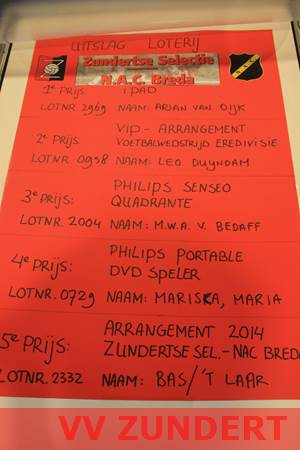 UITSLAG LOTERIJ
Zundertse Selectie
N.A.C. Breda
1e PRIJS: iPAD
LOTNR. 2969 NAAM: ARJAN VAN DIJK
2e PRIJS: VIP-ARRANGEMENT
VOETBALWEDSTRIJD EREDIVISIE
LOTNR 0958 NAAM: LEO DUYNDAM
3e PRIJS: PHILIPS SENSEO
QUADRANTE
LOTNR. 2004 NAAM: M.W.A. V. BEDAFF
4e PRIJS: PHILIPS PORTABLE
DVD SPELER
LOTNR. 0729 NAAM: MARISKA, MARIA
5e PRIJS: ARRANGEMENT 2014
ZUNDERTSE SEL.-NAC BREDA
LOTNR. 2332 NAAM: BAS/'T LAAR
VV ZUNDERT